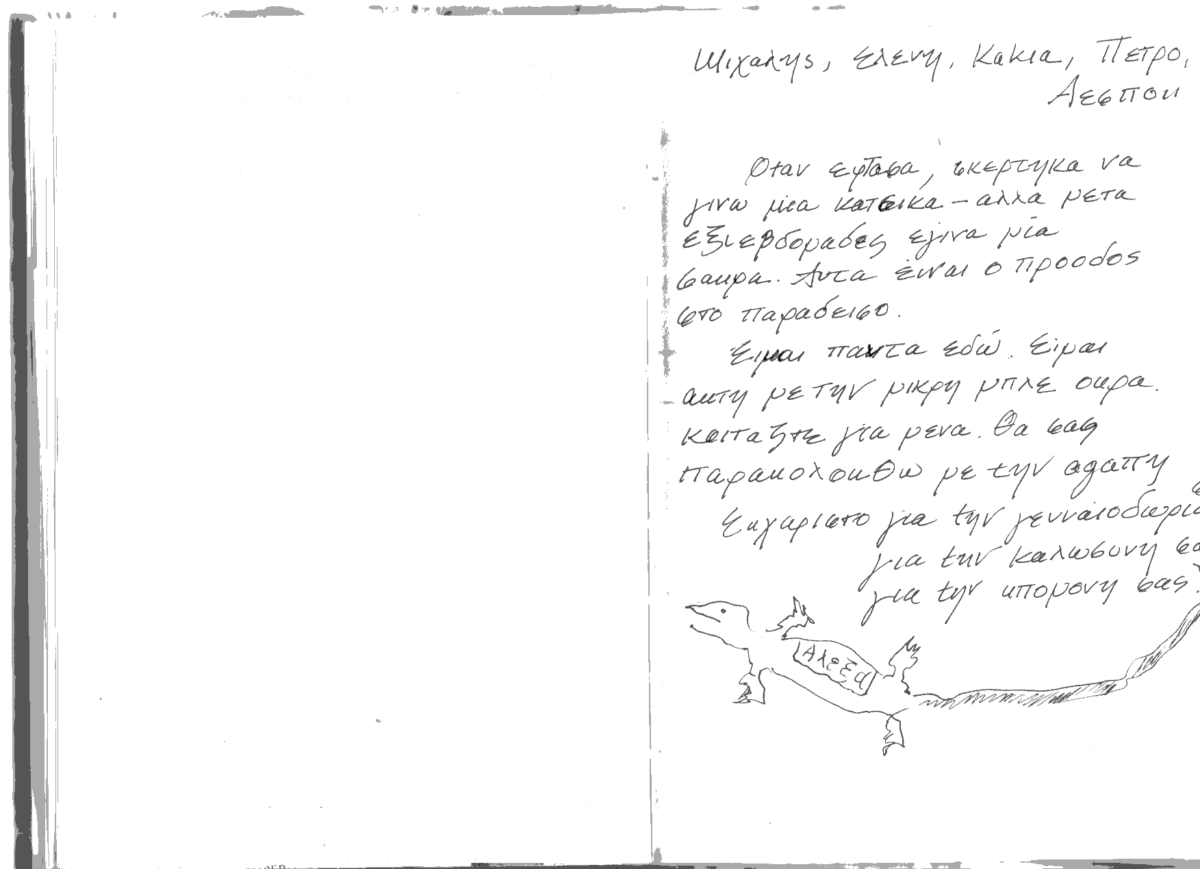 Μιχαλης, Ελενη, Κακια, Πετρο,
Δεσποι
Οταν εφτασα, σκερτηκα να
γινω μια κατσικα – αλλα μετα
εξι εβδομαδες εγινα μία
σαυρα. Αυτα είναι ο προοδος
στο παραδεισο.
Ειμαι παντα εδώ. Είμαι
αυτη με την μικρη μπλε ουρα.
Κοιταξτε για μενα. Θα σας
παρακολουθω με την αγαπη
Ευχαριστο για την γενναιοδωρια
για την καλωσυνη σα
για την υπομονη σας.
Αλεξα